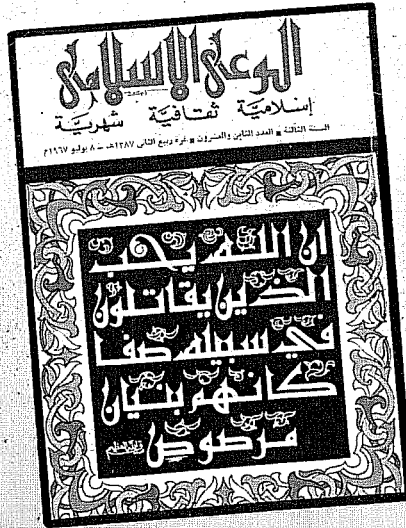 الوعي الإسلامي
إسلاميّة ثقافيّة شهريّة
السنة الثالثة ■ العدد الثامن والعشرون ■ غرة ربيع الثاني ١٣٨٧هـ - ٨ يوليو ١٩٦٧م
ان الله يحب
الذين يقاتلون
في سبيله صفا
كانهم بنيان
مرصوص